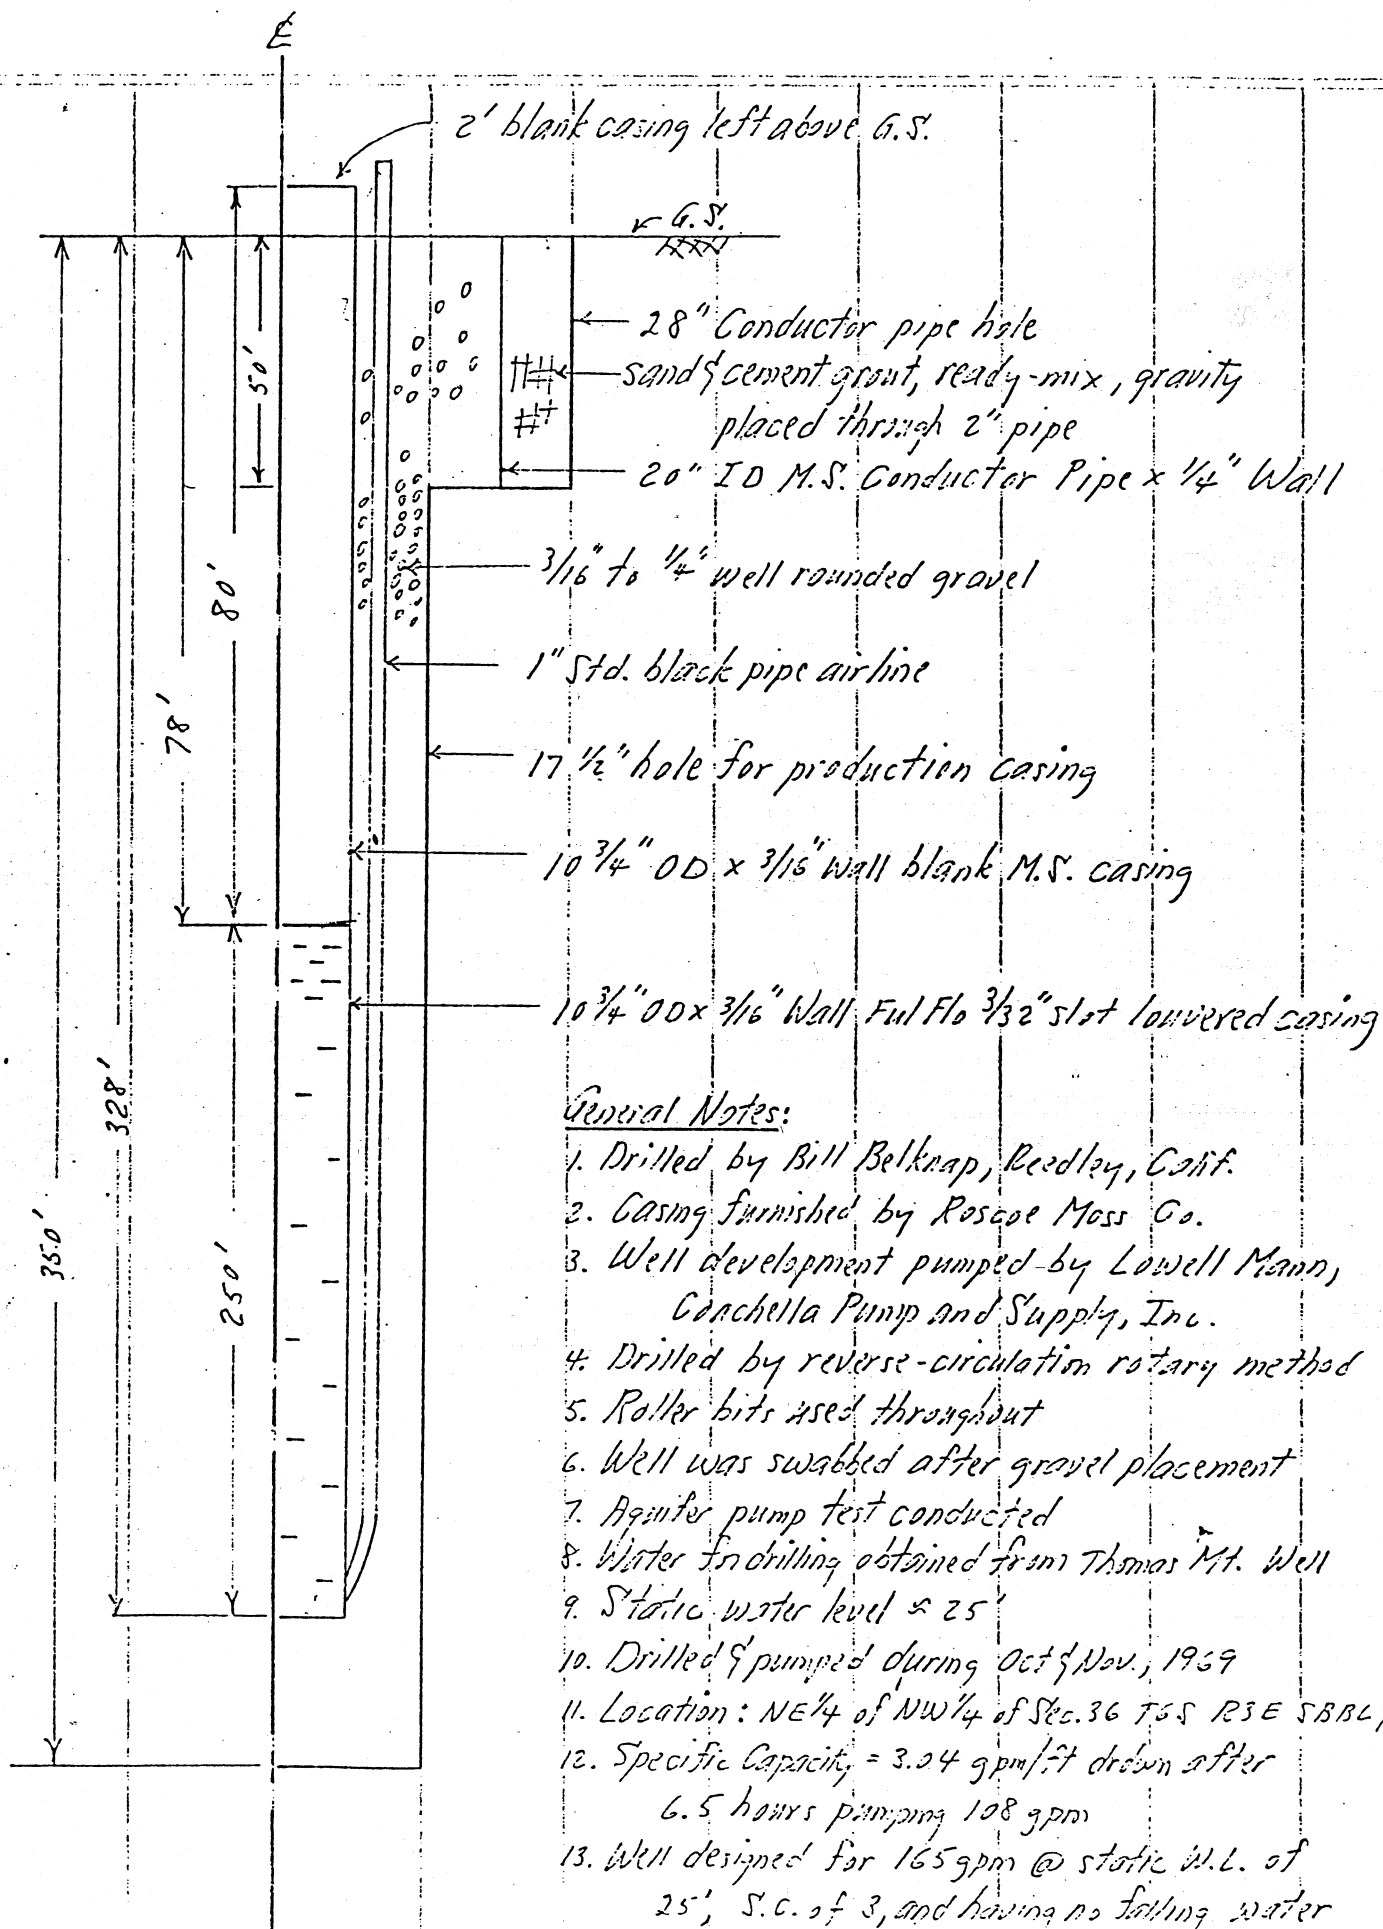 ℄
2' blank casing left above G.S.
G.S.
28" Conductor pipe hole
sand & cement grout, ready-mix, gravity
placed through 2" pipe
20" ID M.S. Conductor Pipe x 1/4" Wall
50'
3/16" to 1/4" well rounded gravel
80'
1" Std. black pipe airline
78'
17 1/2" hole for production casing
10 3/4" OD x 3/16" Wall blank M.S. casing
10 3/4" OD x 3/16" Wall Ful Flo 3/32" slot louvered casing
328'
350'
250'
General Notes:
1. Drilled by Bill Belknap, Reedley, Calif.
2. Casing furnished by Roscoe Moss Co.
3. Well development pumped by Lowell Mann,
Coachella Pump and Supply, Inc.
4. Drilled by reverse-circulation rotary method
5. Roller bits used throughout
6. Well was swabbed after gravel placement
7. Aquifer pump test conducted
8. Water for drilling obtained from Thomas Mt. Well
9. Static water level ≈ 25'
10. Drilled & pumped during Oct & Nov., 1969
11. Location: NE 1/4 of NW 1/4 of Sec. 36 T6S R3E SBBL,
12. Specific Capacity = 3.04 gpm/ft drdwn after
6.5 hours pumping 108 gpm
13. Well designed for 165 gpm @ static W.L. of
25', S.C. of 3, and having no falling water